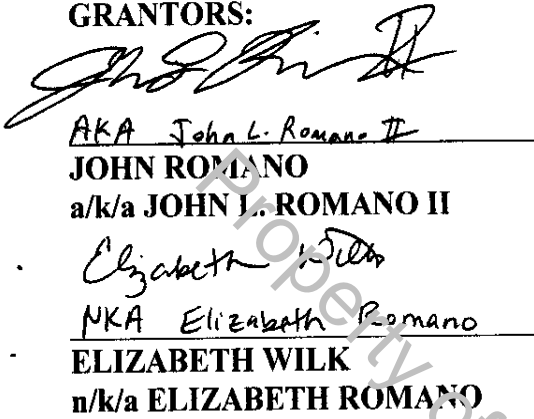 GRANTORS:
AKA John L. Romano II
JOHN ROMANO
a/k/a JOHN L. ROMANO II
Elizabeth Wilk
NKA Elizabeth Romano
ELIZABETH WILK
n/k/a ELIZABETH ROMANO
Property of